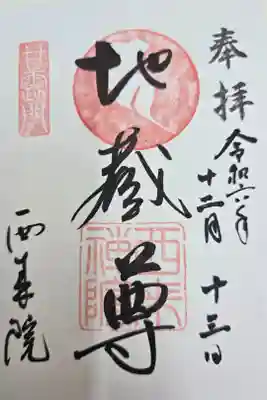 奉拝
令和六年
十二月
十三日
地蔵尊
甘露門
西来院